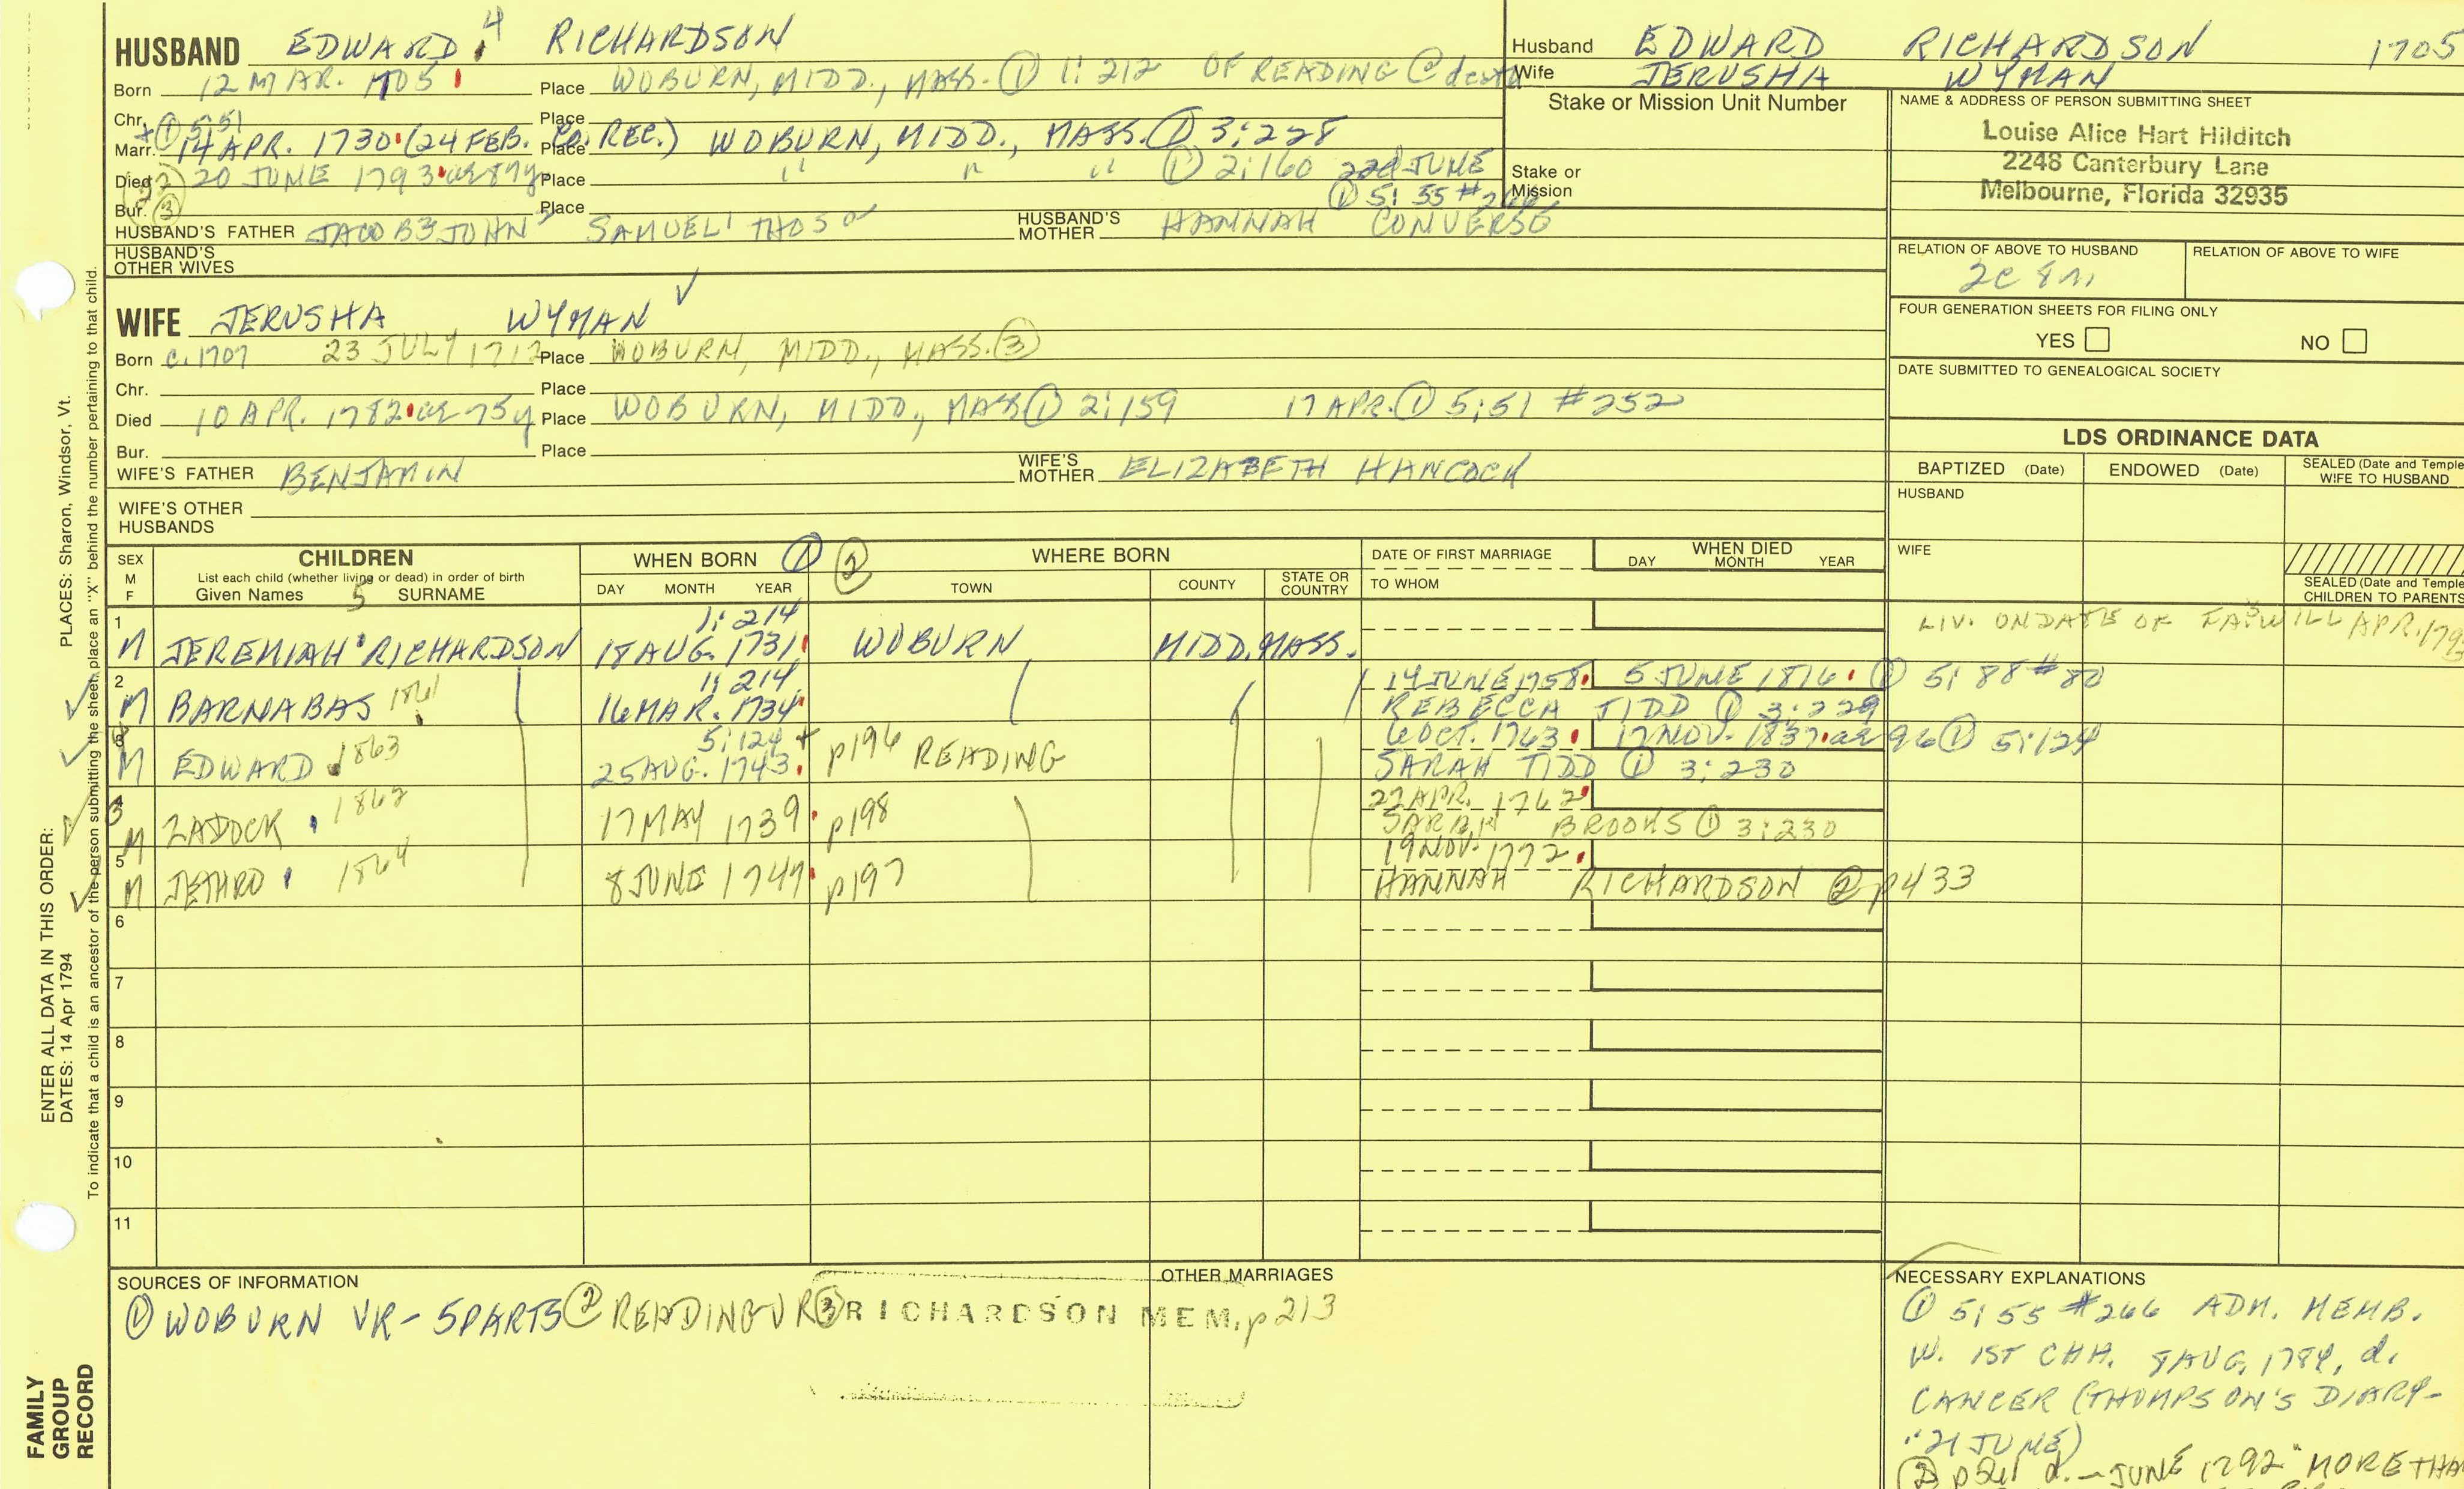 HUSBAND EDWARD 4 RICHARDSON
Born 12 MAR. 1705 Place WOBURN, MIDD., MASS. ① 1:212 OF READING @ death
Chr. ① 5:51 Place
Marr. 14 APR. 1730 (24 FEB. CO. REC.) Place WOBURN, MIDD., MASS. ① 3:228
Died 20 JUNE 1793 ae 87y Place " " " ① 2:160 22d JUNE
① 5:55 #266
Bur. ③ Place
HUSBAND'S FATHER JACOB3 JOHN2 SAMUEL1 THOS0 HUSBAND'S MOTHER HANNAH CONVERSE
HUSBAND'S OTHER WIVES
WIFE JERUSHA WYMAN ✓
Born c. 1707 23 JULY 1712 Place WOBURN, MIDD., MASS. ③
Chr. Place
Died 10 APR. 1782 ae 75y Place WOBURN, MIDD., MASS ① 2:159 17 APR. ① 5:51 #252
Bur. Place
WIFE'S FATHER BENJAMIN WIFE'S MOTHER ELIZABETH HANCOCK
WIFE'S OTHER HUSBANDS
Husband EDWARD RICHARDSON 1705
Wife JERUSHA WYMAN
Stake or Mission Unit Number
Stake or Mission
NAME & ADDRESS OF PERSON SUBMITTING SHEET
Louise Alice Hart Hilditch
2248 Canterbury Lane
Melbourne, Florida 32935
RELATION OF ABOVE TO HUSBAND RELATION OF ABOVE TO WIFE
2c 8m
FOUR GENERATION SHEETS FOR FILING ONLY
YES NO
DATE SUBMITTED TO GENEALOGICAL SOCIETY
LDS ORDINANCE DATA
BAPTIZED (Date) ENDOWED (Date) SEALED (Date and Temple) WIFE TO HUSBAND
HUSBAND
WIFE
SEALED (Date and Temple)
CHILDREN TO PARENTS
SEX M F CHILDREN WHEN BORN ① ② WHERE BORN DATE OF FIRST MARRIAGE WHEN DIED
List each child (whether living or dead) in order of birth
Given Names 5 SURNAME DAY MONTH YEAR TOWN COUNTY STATE OR COUNTRY TO WHOM DAY MONTH YEAR
1 1:214 LIV. ON DATE OF FA.'S WILL APR. 179
M JEREMIAH RICHARDSON 18 AUG. 1731 WOBURN MIDD. MASS.
2 1:214 14 JUNE 1758 5 JUNE 1816 ① 5:88 #80
M BARNABAS 1861 16 MAR. 1734 REBECCA TIDD ① 3:229
4 5:124 + 6 OCT. 1763 17 NOV. 1837 ae 96 ① 5:124
M EDWARD 1863 25 AUG. 1743 p196 READING SARAH TIDD ① 3:230
3 22 APR. 1762
M ZADOCK 1862 17 MAY 1739 p198 SARAH BROOKS ① 3:230
5 19 NOV. 1772
M JETHRO 1864 8 JUNE 1747 p197 HANNAH RICHARDSON ② p433
6
7
8
9
10
11
SOURCES OF INFORMATION
① WOBURN VR - 5 PARTS ② READING VR ③ RICHARDSON MEM. p213
OTHER MARRIAGES
NECESSARY EXPLANATIONS
① 5:55 #266 ADM. MEMB.
W. 1ST CHH. 8 AUG. 1784, d.
CANCER (THOMPSON'S DIARY-
"21 JUNE)
② d. - JUNE 1792 "MORE THA
ENTER ALL DATA IN THIS ORDER:
DATES: 14 Apr 1794 PLACES: Sharon, Windsor, Vt.
To indicate that a child is an ancestor of the person submitting the sheet, place an "X" behind the number pertaining to that child.
FAMILY
GROUP
RECORD